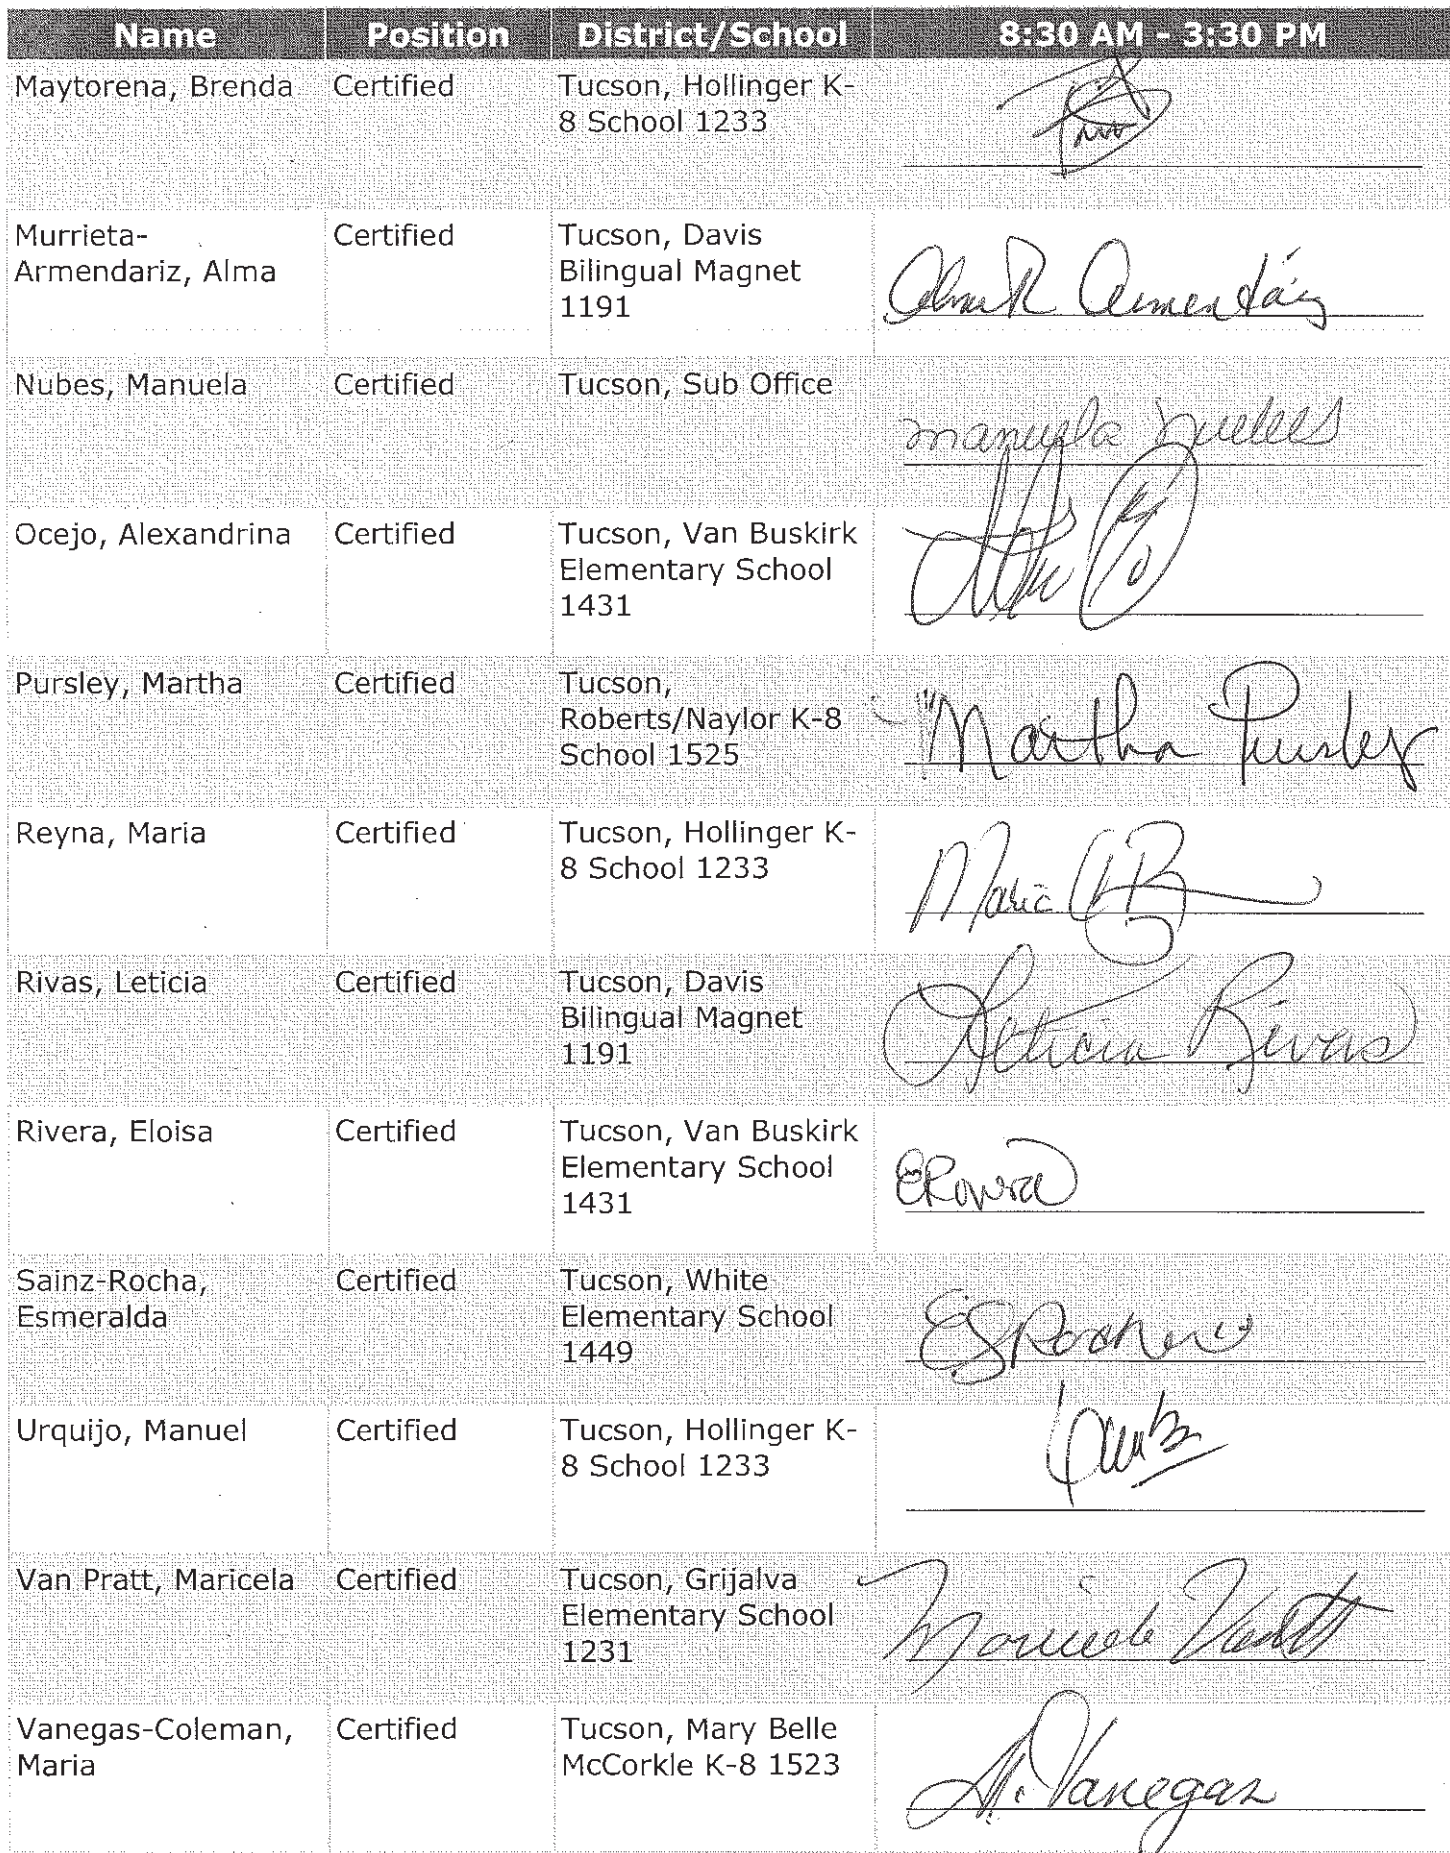 Name Position District/School 8:30 AM - 3:30 PM
Maytorena, Brenda Certified Tucson, Hollinger K-
8 School 1233
Murrieta- Certified Tucson, Davis
Armendariz, Alma Bilingual Magnet
1191
Alma R Armendáriz
Nubes, Manuela Certified Tucson, Sub Office
manuela nubes
Ocejo, Alexandrina Certified Tucson, Van Buskirk
Elementary School
1431
Pursley, Martha Certified Tucson,
Roberts/Naylor K-8
School 1525
Martha Pursley
Reyna, Maria Certified Tucson, Hollinger K-
8 School 1233
Maria
Rivas, Leticia Certified Tucson, Davis
Bilingual Magnet
1191
Leticia Rivas
Rivera, Eloisa Certified Tucson, Van Buskirk
Elementary School
1431
ERivera
Sainz-Rocha, Certified Tucson, White
Esmeralda Elementary School
1449
Urquijo, Manuel Certified Tucson, Hollinger K-
8 School 1233
Van Pratt, Maricela Certified Tucson, Grijalva
Elementary School
1231
Maricela
Vanegas-Coleman, Certified Tucson, Mary Belle
Maria McCorkle K-8 1523
M. Vanegas